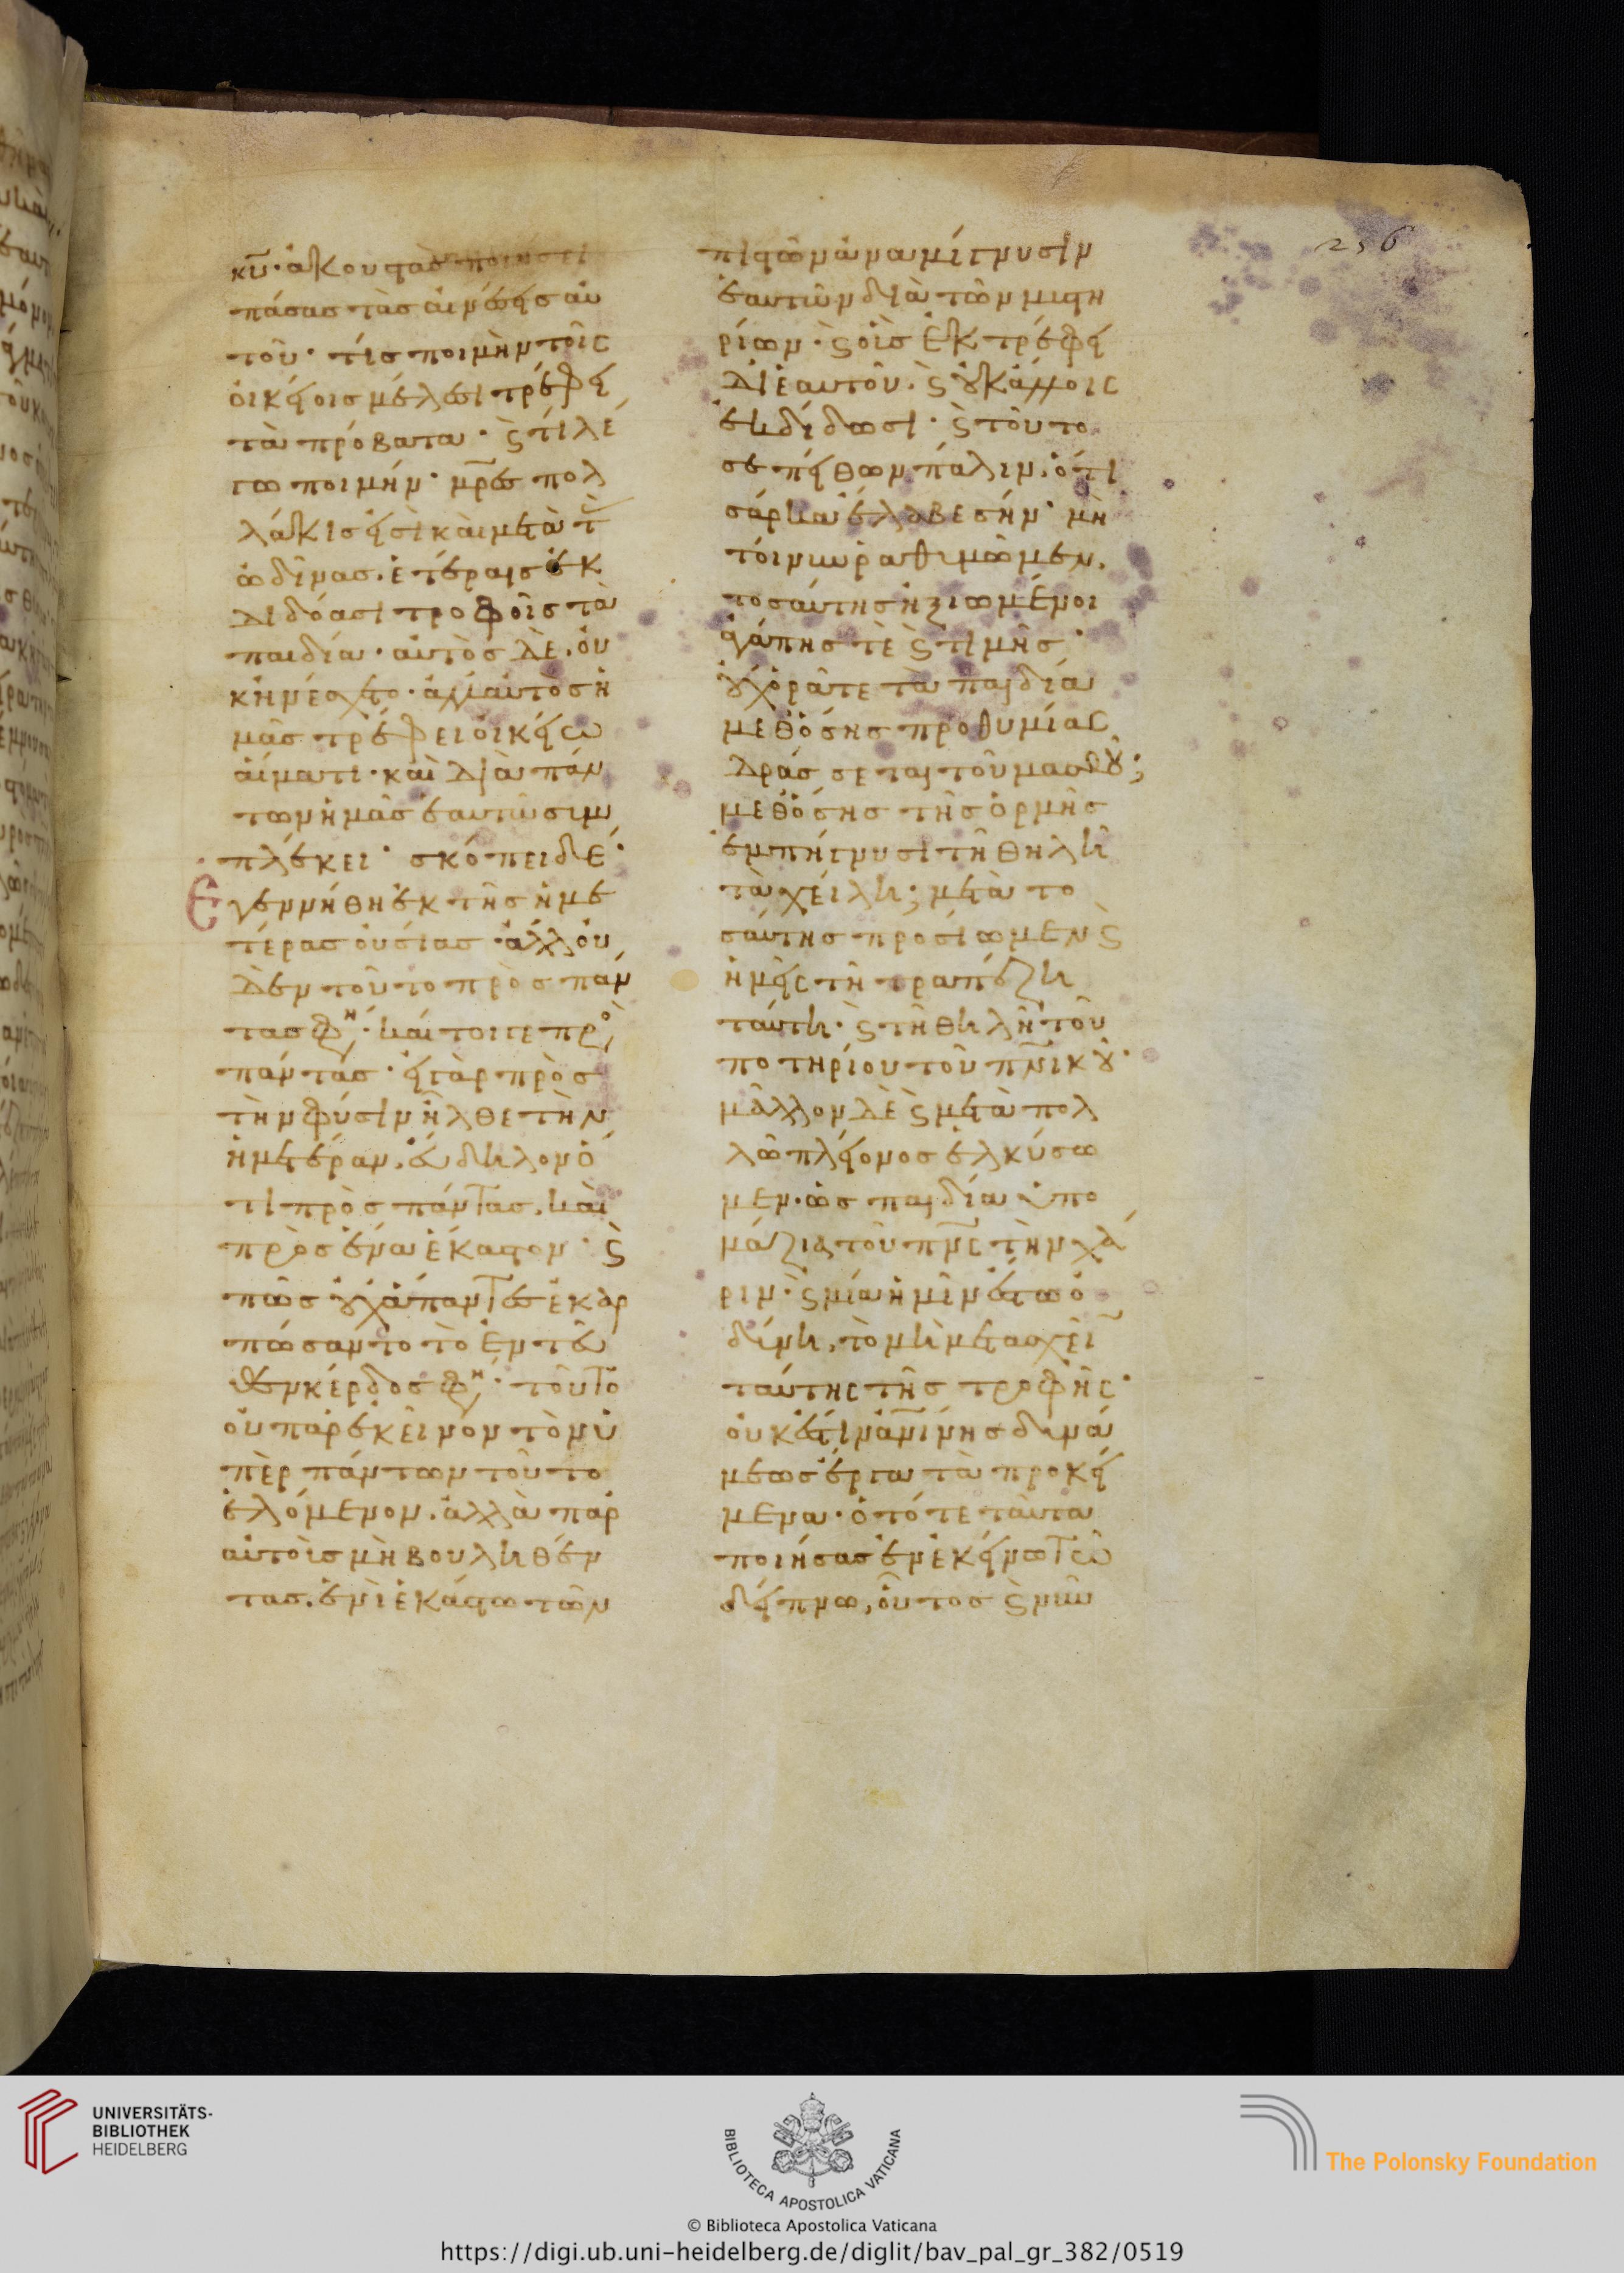 κ̅υ̅· ἀκουστὰς ποιήσει
πάσας τὰς αἰνέσεις αὐ
τοῦ· τίς ποιμὴν τοῖς
οἰκείοις μέλεσι τρέφει
τὰ πρόβατα· ϛ τί λέ
γω ποιμήν· μ̅ρ̅ες πολ
λάκις εἰσὶ καὶ μετὰ τ(ὰς)
ὠδῖνας. ἑτέραις ἐκ
διδόασι τροφοῖς τὰ
παιδία· αὐτὸς δὲ, οὐ
κ ἠνέσχετο· ἀλλ αὐτὸς ἡ
μᾶς τρέφει οἰκείω
αἵματι· καὶ διὰ πάν
των ἡμᾶς ἑαυτῶ συμ
πλέκει· σκόπει δέ·
Ἐγεννήθη ἐκ τῆς ἡμε
τέρας οὐσίας· ἀλλ οὐ
δὲν τοῦτο πρὸς πάν
τας φη(σί)· καίτοιγε πρὸ(ς)
πάντας· εἰ γὰρ πρὸς
τὴν φύσιν ἦλθε τὴν
ἡμετέραν, εὔδηλον ὅ
τι πρὸς πάντας. καὶ
πρὸς ἕνα ἕκαστον· ϛ
πῶς οὐχ ἅπαντες ἐκαρ
πώσαντο τὸ ἐντεῦ
θεν κέρδος φη(σί)· τοῦτο
οὐ παρ ἐκεῖνον τὸν ὑ
πὲρ πάντων τοῦτο
ἑλόμενον. ἀλλὰ παρ
αὐτοὺς μὴ βουληθέν
τας. ἑνὶ ἑκάστω τῶν
πιστῶν ἀναμίγνυσιν
ἑαυτὸν διὰ τῶν μυστη
ρίων· ϛ οὓς ἐκτρέφει
δι ἑαυτοῦ. ϛ οὐκ ἄλλοις
ἐκδίδωσι· ϛ τοῦτο
σε πείθων πάλιν. ὅτι
σάρκα ἔλαβε σήν· μὴ
τοίνυν ῥαθυμῶμεν,
τοσαύτης ἠξιωμένοι
ἀγάπης τὲ ϛ τιμῆς·
οὐχ ὁρᾶτε τὰ παιδία
μεθ ὅσης προθυμίας
δράσσεται τοῦ μασθοῦ;
μεθ ὅσης τῆς ὁρμῆς
ἐμπήγνυσι τῆ θηλῆ
τὰ χείλη; μετὰ το
σαύτης προσίωμεν ϛ
ἡμεῖς τῆ τραπέζη
ταύτη· ϛ τῆ θηλῆ τοῦ
ποτηρίου τοῦ π̅ν̅ικοῦ·
μᾶλλον δὲ ϛ μετὰ πολ
λῶ πλείονος ἑλκύσω
μεν. ὡς παιδία ὑπο
μάζια τοῦ π̅ν̅ς τὴν χά
ριν· ϛ μία ἡμῖν ἔστω ὀ
δύνη, τὸ μὴ μετασχεῖν
ταύτης τῆς τροφῆς·
οὐκ ἔστιν ἀ̅ν̅ίνης δυνά
μεως ἔργα τὰ προκεί
μενα· ὁ τότε ταῦτα
ποιήσας ἐν ἐκείνω τῶ
δείπνω, οὗτος ϛ νῦν
256
UNIVERSITÄTS-
BIBLIOTHEK
HEIDELBERG
BIBLIOTECA APOSTOLICA VATICANA
The Polonsky Foundation
© Biblioteca Apostolica Vaticana
https://digi.ub.uni-heidelberg.de/diglit/bav_pal_gr_382/0519